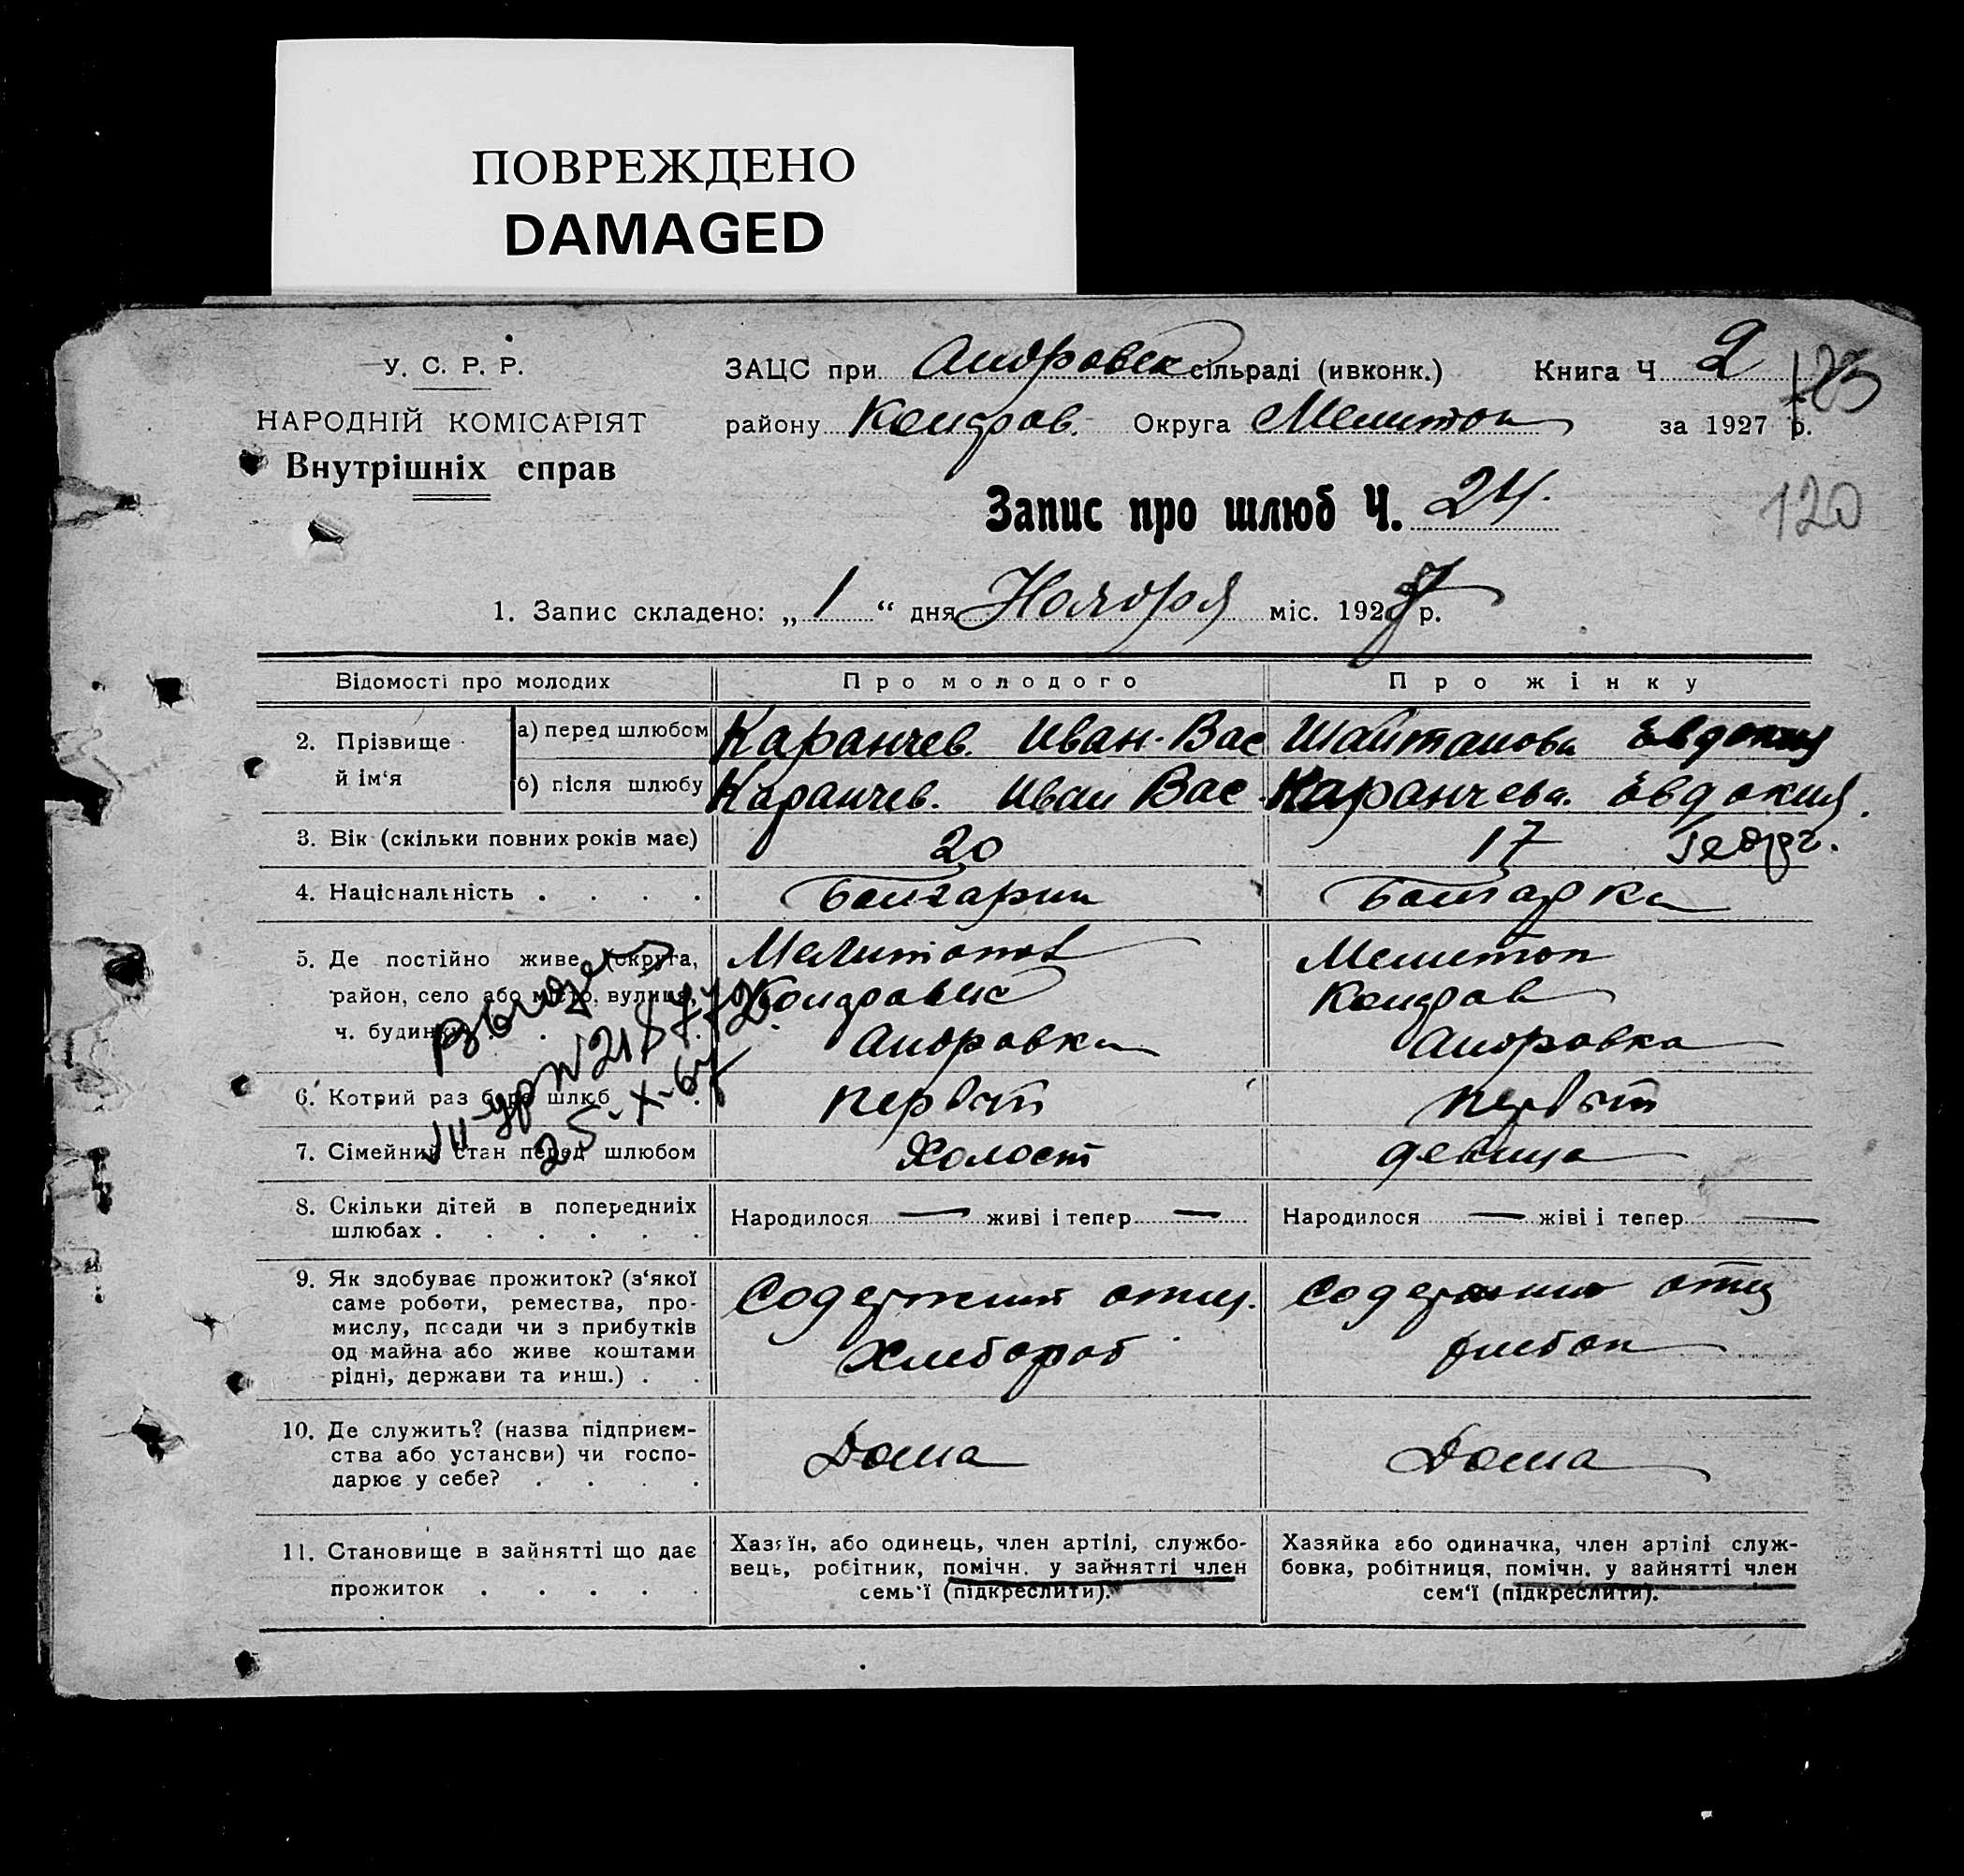 ПОВРЕЖДЕНО
DAMAGED
У. С. Р. Р.
НАРОДНІЙ КОМІСАРІЯТ
Внутрішніх справ
ЗАЦС при Андровск сільраді (ивконк.) Книга Ч 2
району Кондров. Округа Мелитоп за 1927 р.
Запис про шлюб Ч. 24.
120
1. Запис складено: „ 1 “ дня Ноября міс. 1927 р.
Відомості про молодих Про молодого Про жінку
2. Прізвище й ім‘я
а) перед шлюбом Каранчев. Иван. Вас Шайтанова Евдокия
б) після шлюбу Каранчев. Иван Вас. Каранчева. Евдокия
3. Вік (скільки повних років має) 20 17 Георг.
4. Національність . . . . Болгарин Болгарка
5. Де постійно живе (округа, Мелитопол Мелитоп
район, село або місто, вулиця, Кондровск Кондров
ч. будинку) Андровка Андровка
6. Котрий раз бере шлюб первый первый
7. Сімейний стан перед шлюбом Холост девица
8. Скільки дітей в попередніх
шлюбах . . . . . . Народилося — живі і тепер — Народилося — жіві і тепер —
9. Як здобуває прожиток? (з‘якої
саме роботи, ремества, про-
мислу, посади чи з прибутків
од майна або живе коштами
рідні, держави та инш.) . .
Содержит отец. Содержит отец
Хлебороб
10. Де служить? (назва підприєм-
ства або установи) чи госпо-
дарює у себе? . . . .
Дома Дома
11. Становище в зайнятті що дає
прожиток . . . . .
Хазяїн, або одинець, член артілі, службо-
вець, робітник, помічн. у зайнятті член
семь‘ї (підкреслити).
Хазяйка або одиначка, член артілі служ-
бовка, робітниця, помічн. у зайнятті член
сем‘ї (підкреслити).
25-X-67